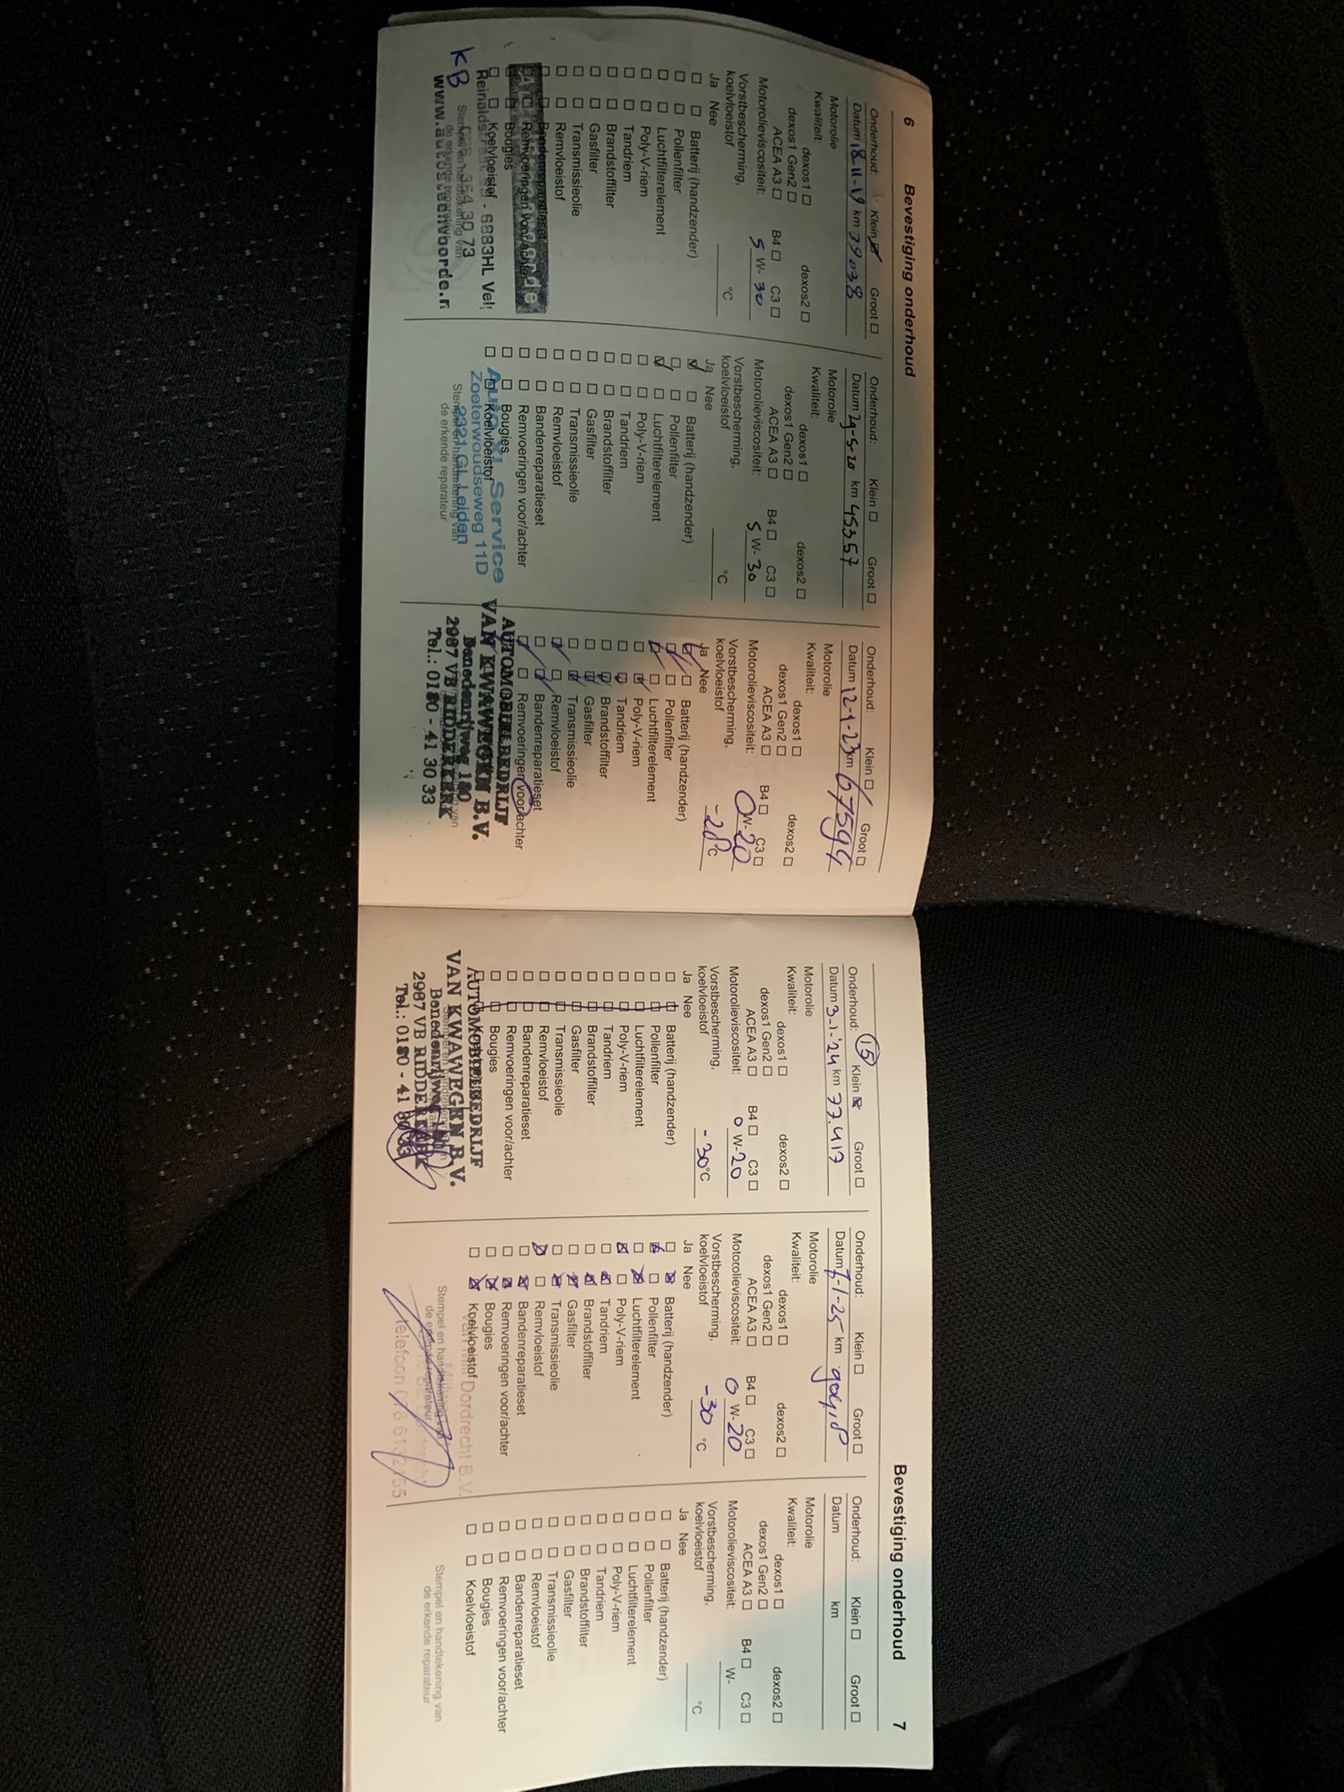 6 Bevestiging onderhoud
Onderhoud: Klein Groot
Datum 18-11-19 km 39038
Motorolie
Kwaliteit:
dexos1 dexos2
dexos1 Gen2
ACEA A3 B4 C3
Motorolieviscositeit: 5 W- 30
Vorstbescherming,
koelvloeistof °C
Ja Nee
Batterij (handzender)
Pollenfilter
Luchtfilterelement
Poly-V-riem
Tandriem
Brandstoffilter
Gasfilter
Transmissieolie
Remvloeistof
Bougies
Koelvloeistof
- 6883HL Vel
30 73
www.autostednvoorde.n
KB
Onderhoud: Klein Groot
Datum 29-5-20 km 45357
Motorolie
Kwaliteit:
dexos1 dexos2
dexos1 Gen2
ACEA A3 B4 C3
Motorolieviscositeit: 5 W- 30
Vorstbescherming,
koelvloeistof °C
Ja Nee
Batterij (handzender)
Pollenfilter
Luchtfilterelement
Poly-V-riem
Tandriem
Brandstoffilter
Gasfilter
Transmissieolie
Remvloeistof
Bandenreparatieset
Remvoeringen voor/achter
Bougies
Koelvloeistof
Service
Zoeterwoudseweg 11D
2321 GL Leiden
Stempel en handtekening van
de erkende reparateur
Onderhoud: Klein Groot
Datum 12-1-23 km 67594
Motorolie
Kwaliteit:
dexos1 dexos2
dexos1 Gen2
ACEA A3 B4 C3
Motorolieviscositeit: 0 W- 20
Vorstbescherming,
koelvloeistof -28 °C
Ja Nee
Batterij (handzender)
Pollenfilter
Luchtfilterelement
Poly-V-riem
Tandriem
Brandstoffilter
Gasfilter
Transmissieolie
Remvloeistof
Bandenreparatieset
Remvoeringen voor/achter
AUTOMOBIELBEDRIJF
VAN KWAWEGEN B.V.
Benedenrijweg 180
2987 VB RIDDERKERK
Tel.: 0180 - 41 30 33
Bevestiging onderhoud 7
15
Onderhoud: Klein Groot
Datum 3-1-'24 km 77.417
Motorolie
Kwaliteit:
dexos1 dexos2
dexos1 Gen2
ACEA A3 B4 C3
Motorolieviscositeit: 0 W- 20
Vorstbescherming,
koelvloeistof -30 °C
Ja Nee
Batterij (handzender)
Pollenfilter
Luchtfilterelement
Poly-V-riem
Tandriem
Brandstoffilter
Gasfilter
Transmissieolie
Remvloeistof
Bandenreparatieset
Remvoeringen voor/achter
Bougies
AUTOMOBIELBEDRIJF
VAN KWAWEGEN B.V.
Benedenrijweg
2987 VB RIDDERKERK
Tel.: 0180 - 41 30 33
Onderhoud: Klein Groot
Datum 7-1-25 km
Motorolie
Kwaliteit:
dexos1 dexos2
dexos1 Gen2
ACEA A3 B4 C3
Motorolieviscositeit: 0 W- 20
Vorstbescherming,
koelvloeistof -30 °C
Ja Nee
Batterij (handzender)
Pollenfilter
Luchtfilterelement
Poly-V-riem
Tandriem
Brandstoffilter
Gasfilter
Transmissieolie
Remvloeistof
Bandenreparatieset
Remvoeringen voor/achter
Bougies
Koelvloeistof
Dordrecht B.V.
Stempel en handtekening van
de erkende reparateur
Telefoon
Onderhoud: Klein Groot
Datum km
Motorolie
Kwaliteit:
dexos1 dexos2
dexos1 Gen2
ACEA A3 B4 C3
Motorolieviscositeit: W-
Vorstbescherming,
koelvloeistof °C
Ja Nee
Batterij (handzender)
Pollenfilter
Luchtfilterelement
Poly-V-riem
Tandriem
Brandstoffilter
Gasfilter
Transmissieolie
Remvloeistof
Bandenreparatieset
Remvoeringen voor/achter
Bougies
Koelvloeistof
Stempel en handtekening van
de erkende reparateur